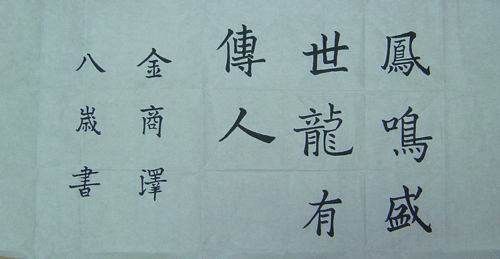 鳳鳴盛
世龍有
傳人
金商澤
八歲書